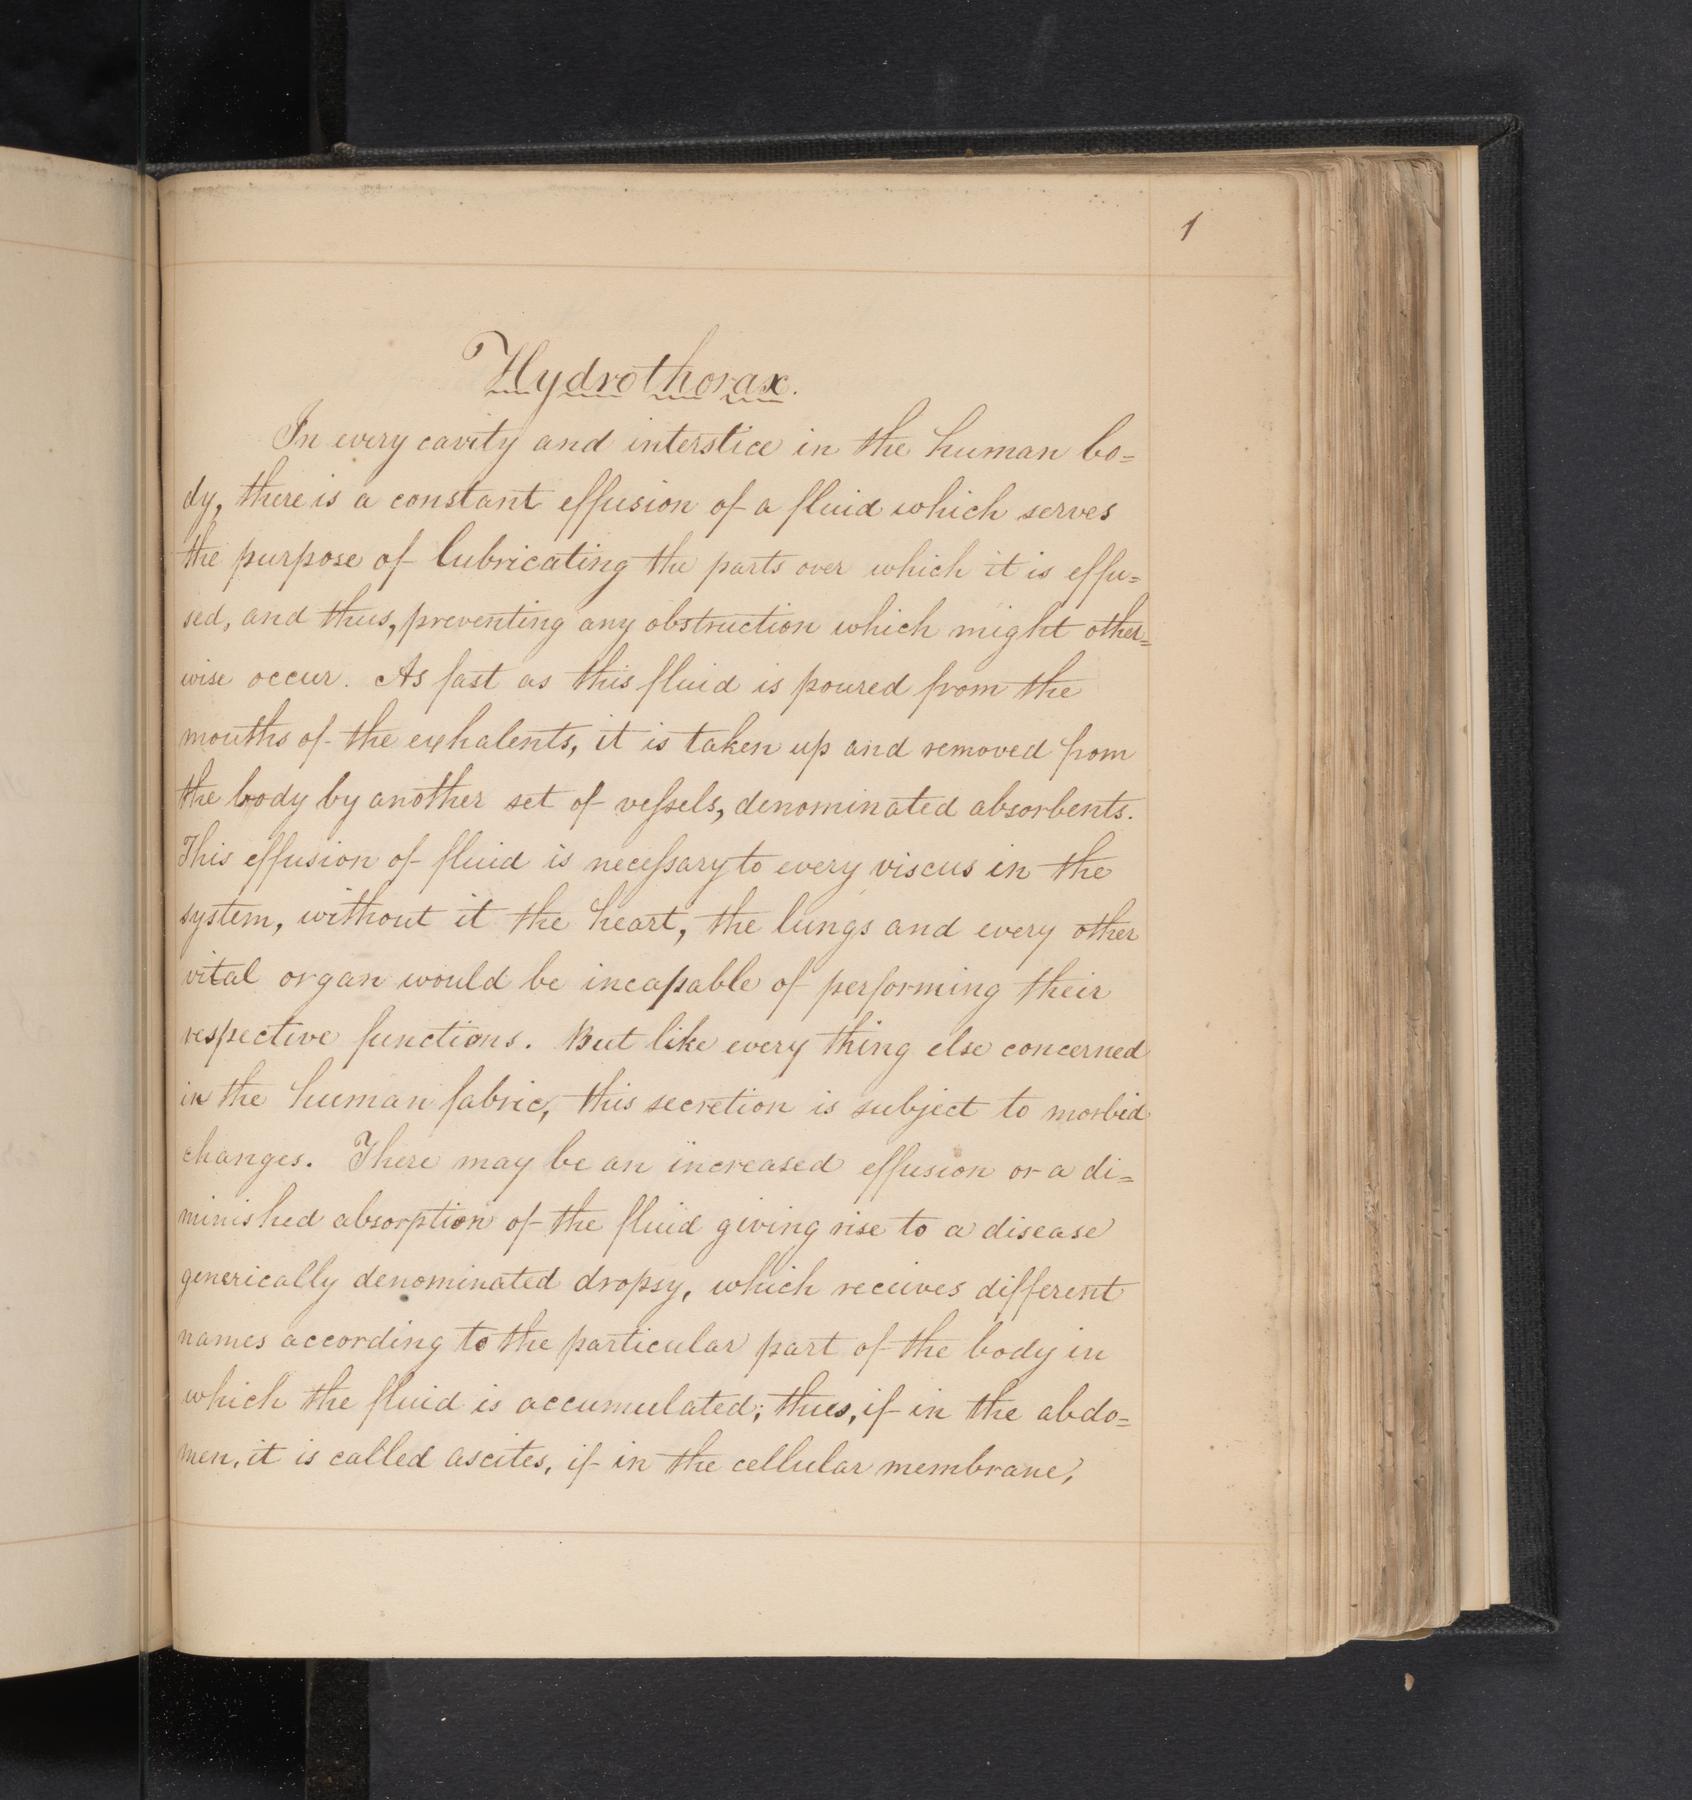 1
Hydrothorax.
In every cavity and interstice in the human bo=
dy, there is a constant effusion of a fluid which serves
the purpose of lubricating the parts over which it is effu=
sed, and thus, preventing any obstruction which might other=
wise occur. As fast as this fluid is poured from the
mouths of the exhalents, it is taken up and removed from
the body by another set of veſsels, denominated absorbents.
This effusion of fluid is neceſsary to every viscus in the
system, without it the heart, the lungs and every other
vital organ would be incapable of performing their
respective functions. But like every thing else concerned
in the human fabric, this secretion is subject to morbid
changes. There may be an increased effusion or a di=
minished absorption of the fluid giving rise to a disease
generically denominated dropsy, which receives different
names according to the particular part of the body in
which the fluid is accumulated; thus, if in the abdo=
men, it is called ascites, if in the cellular membrane,